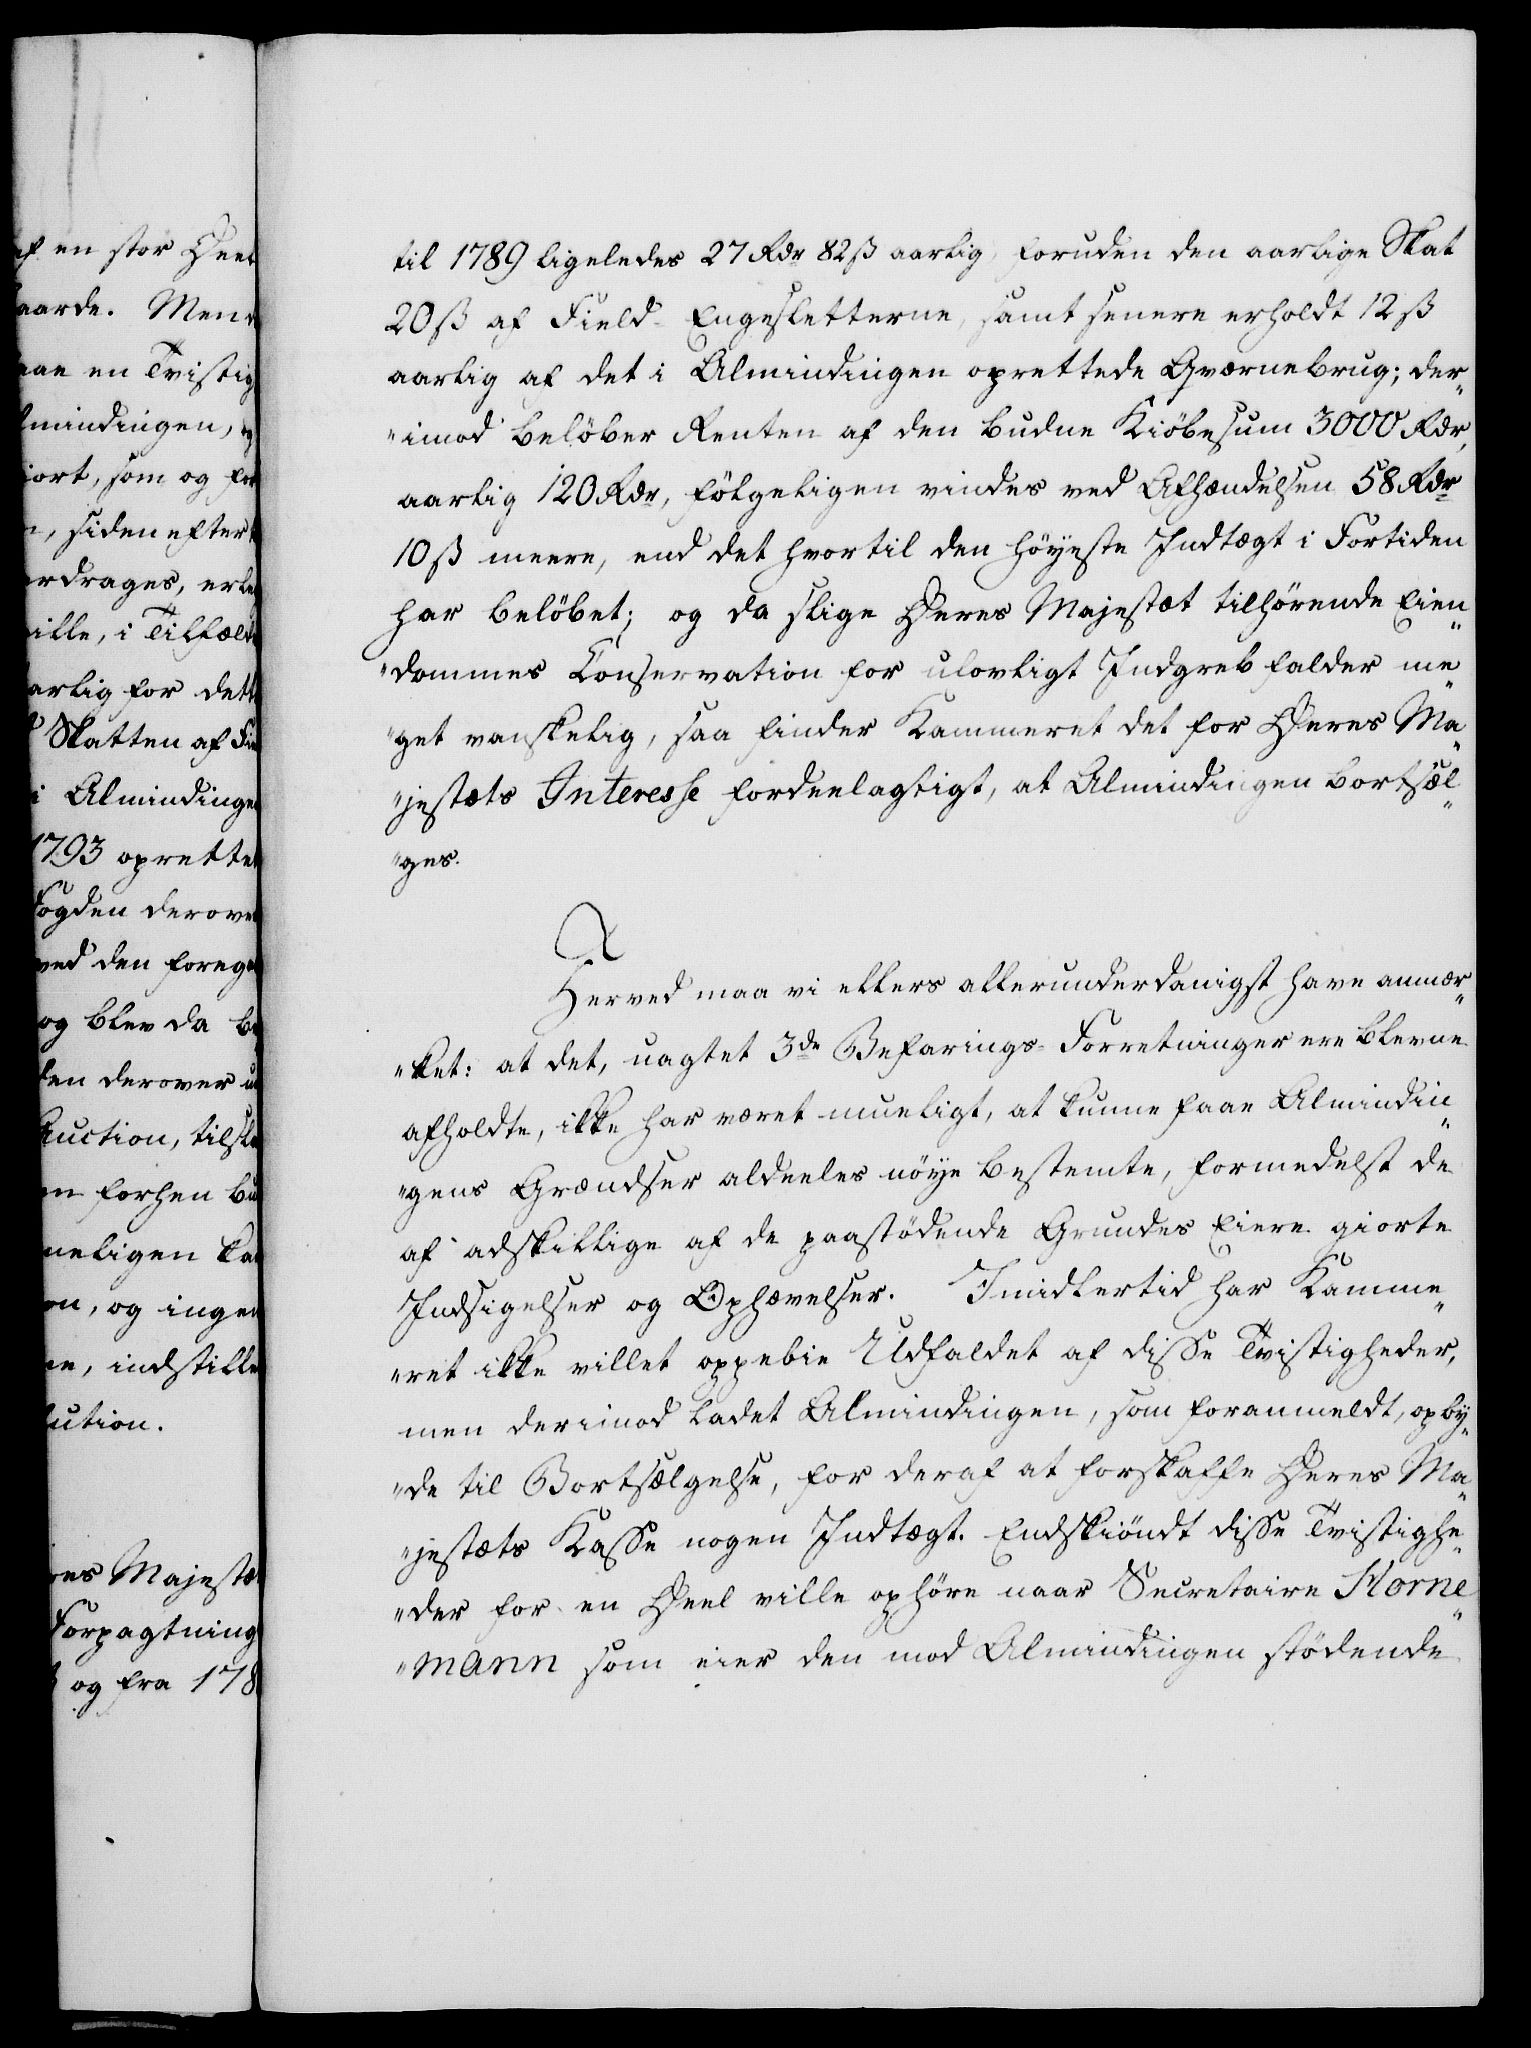 af en stor Deel
aarde. Mend
aae en Tvistig
lmindingen, og
iort, som og for
n, siden eftert
erdrages, erle
ille, i Tilfælde
aarlig for dett
Skatten af Fie
i Almindinge
1793 oprettet
Fogden derove
ved den forega
og blev da be
den derover u
Auction, tilsla
en forhen bu
neligen ka
en, og inge
ne, indstille
lution.
res Majestæ
Forpagtning
og fra 178
til 1789 ligeledes 27 Rdr 82 ß aarlig, foruden den aarlige Skat
20 ß af Field-Engesletterne, samt senere erholdt 12 ß
aarlig af det i Almindingen oprettede Qværnebrug; der„
„imod beløber Renten af den budne Kiöbesum 3000 Rdr,
aarlig 120 Rdr, fölgeligen vindes ved Afhændelsen 58 Rdr
10 ß meere, end det hvortil den höyeste Indtægt i Fortiden
har belöbet; og da slige Deres Majestæt tilhörende Eien„
„dommes Conservation for ulovligt Indgreb falder me„
„get vanskelig, saa finder Kammeret det for Deres Ma„
„jestæts Interesse fordeelagtigt, at Almindingen bortsæl„
„ges.
Herved maa vi ellers allerunderdanigst have anmær„
„ket: at det, uagtet 3de Befarings-Forretninger ere blevne
afholdte, ikke har været mueligt, at kunne faae Almindin„
„gens Grændser aldeeles nöye bestemte, formedelst de
af adskillige af de paastödende Grundes Eiere giorte
Indsigelser og Ophævelser. Imidlertid har Kamme„
„ret ikke villet oppebie Udfaldet af disse Tvistigheder,
men derimod ladet Almindingen, som foranmeldt, opby„
„de til Bortsælgelse, for deraf at forskaffe Deres Ma„
„jestæts Kasse nogen Indtægt. Endskiöndt disse Tvistighe„
„der for en Deel ville ophöre naar Secretaire Horne„
„mann som eier den mod Almindingen stödende